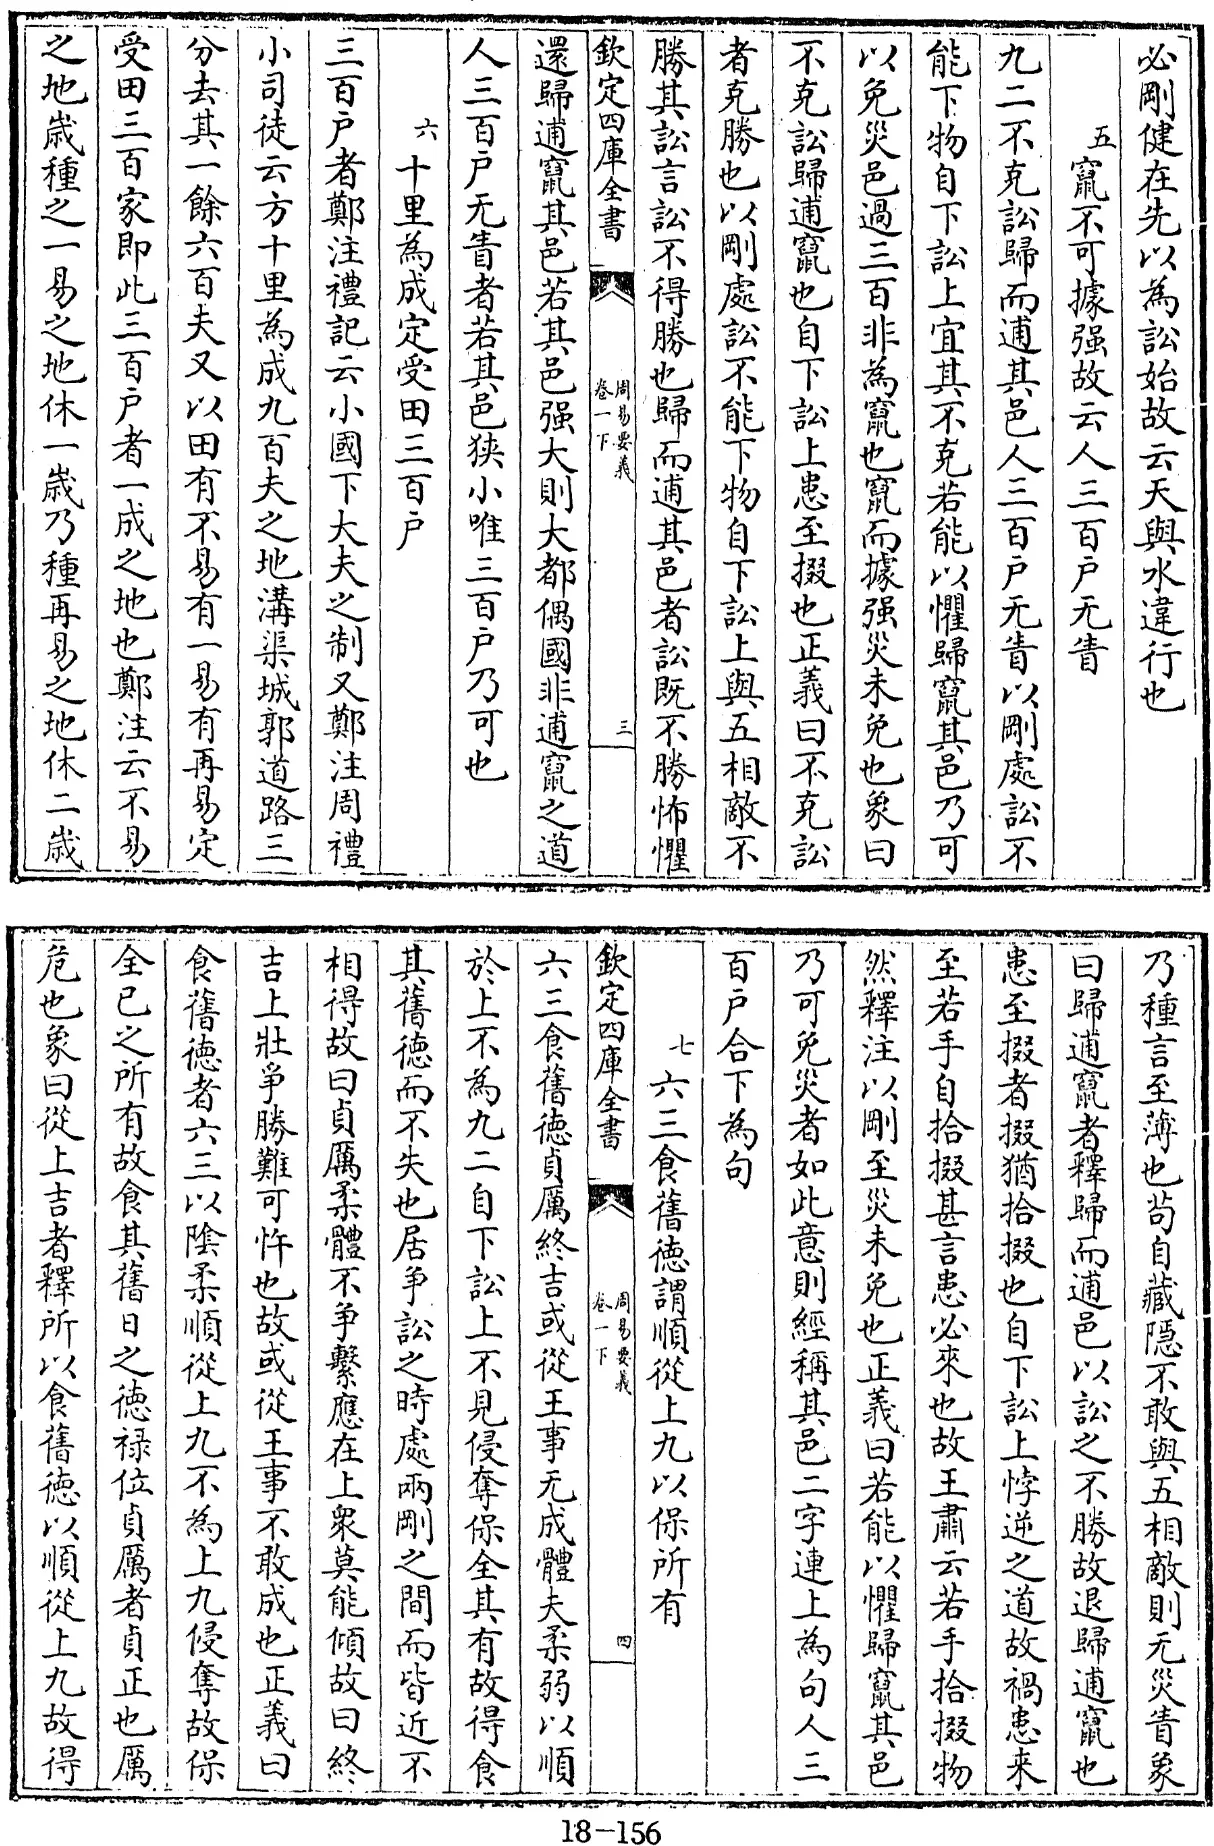 必剛健在先以為訟始故云天與水違行也
五 竄不可據强故云人三百户无眚
九二不克訟歸而逋其邑人三百户无眚以剛處訟不
能下物自下訟上宜其不克若能以懼歸竄其邑乃可
以免災邑過三百非為竄也竄而據强災未免也象曰
不克訟歸逋竄也自下訟上患至掇也正義曰不克訟
者克勝也以剛處訟不能下物自下訟上與五相敵不
勝其訟言訟不得勝也歸而逋其邑者訟既不勝怖懼
欽定四庫全書
周易要義
卷一下
三
還歸逋竄其邑若其邑强大則大都偶國非逋竄之道
人三百户无眚者若其邑狹小唯三百户乃可也
六 十里為成定受田三百户
三百户者鄭注禮記云小國下大夫之制又鄭注周禮
小司徒云方十里為成九百夫之地溝渠城郭道路三
分去其一餘六百夫又以田有不易有一易有再易定
受田三百家即此三百户者一成之地也鄭注云不易
之地歲種之一易之地休一歲乃種再易之地休二歲
乃種言至薄也苟自藏隱不敢與五相敵則无災眚象
曰歸逋竄者釋歸而逋邑以訟之不勝故退歸逋竄也
患至掇者掇猶拾掇也自下訟上悖逆之道故禍患來
至若手自拾掇甚言患必來也故王肅云若手拾掇物
然釋注以剛至災未免也正義曰若能以懼歸竄其邑
乃可免災者如此意則經稱其邑二字連上為句人三
百户合下為句
七 六三食舊徳謂順從上九以保所有
欽定四庫全書
周易要義
卷一下
四
六三食舊徳貞厲終吉或從王事无成體夫柔弱以順
於上不為九二自下訟上不見侵奪保全其有故得食
其舊徳而不失也居爭訟之時處兩剛之間而皆近不
相得故曰貞厲柔體不爭繫應在上衆莫能傾故曰終
吉上壯爭勝難可忤也故或從王事不敢成也正義曰
食舊徳者六三以陰柔順從上九不為上九侵奪故保
全已之所有故食其舊日之徳禄位貞厲者貞正也厲
危也象曰從上吉者釋所以食舊徳以順從上九故得
18-156